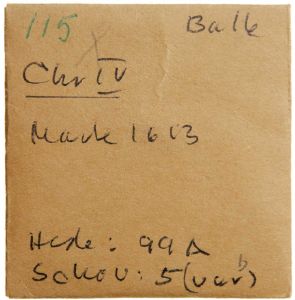 115 Balk
Chr IV
Mark 1613
Hede: 99A
Schou: 5(var b)